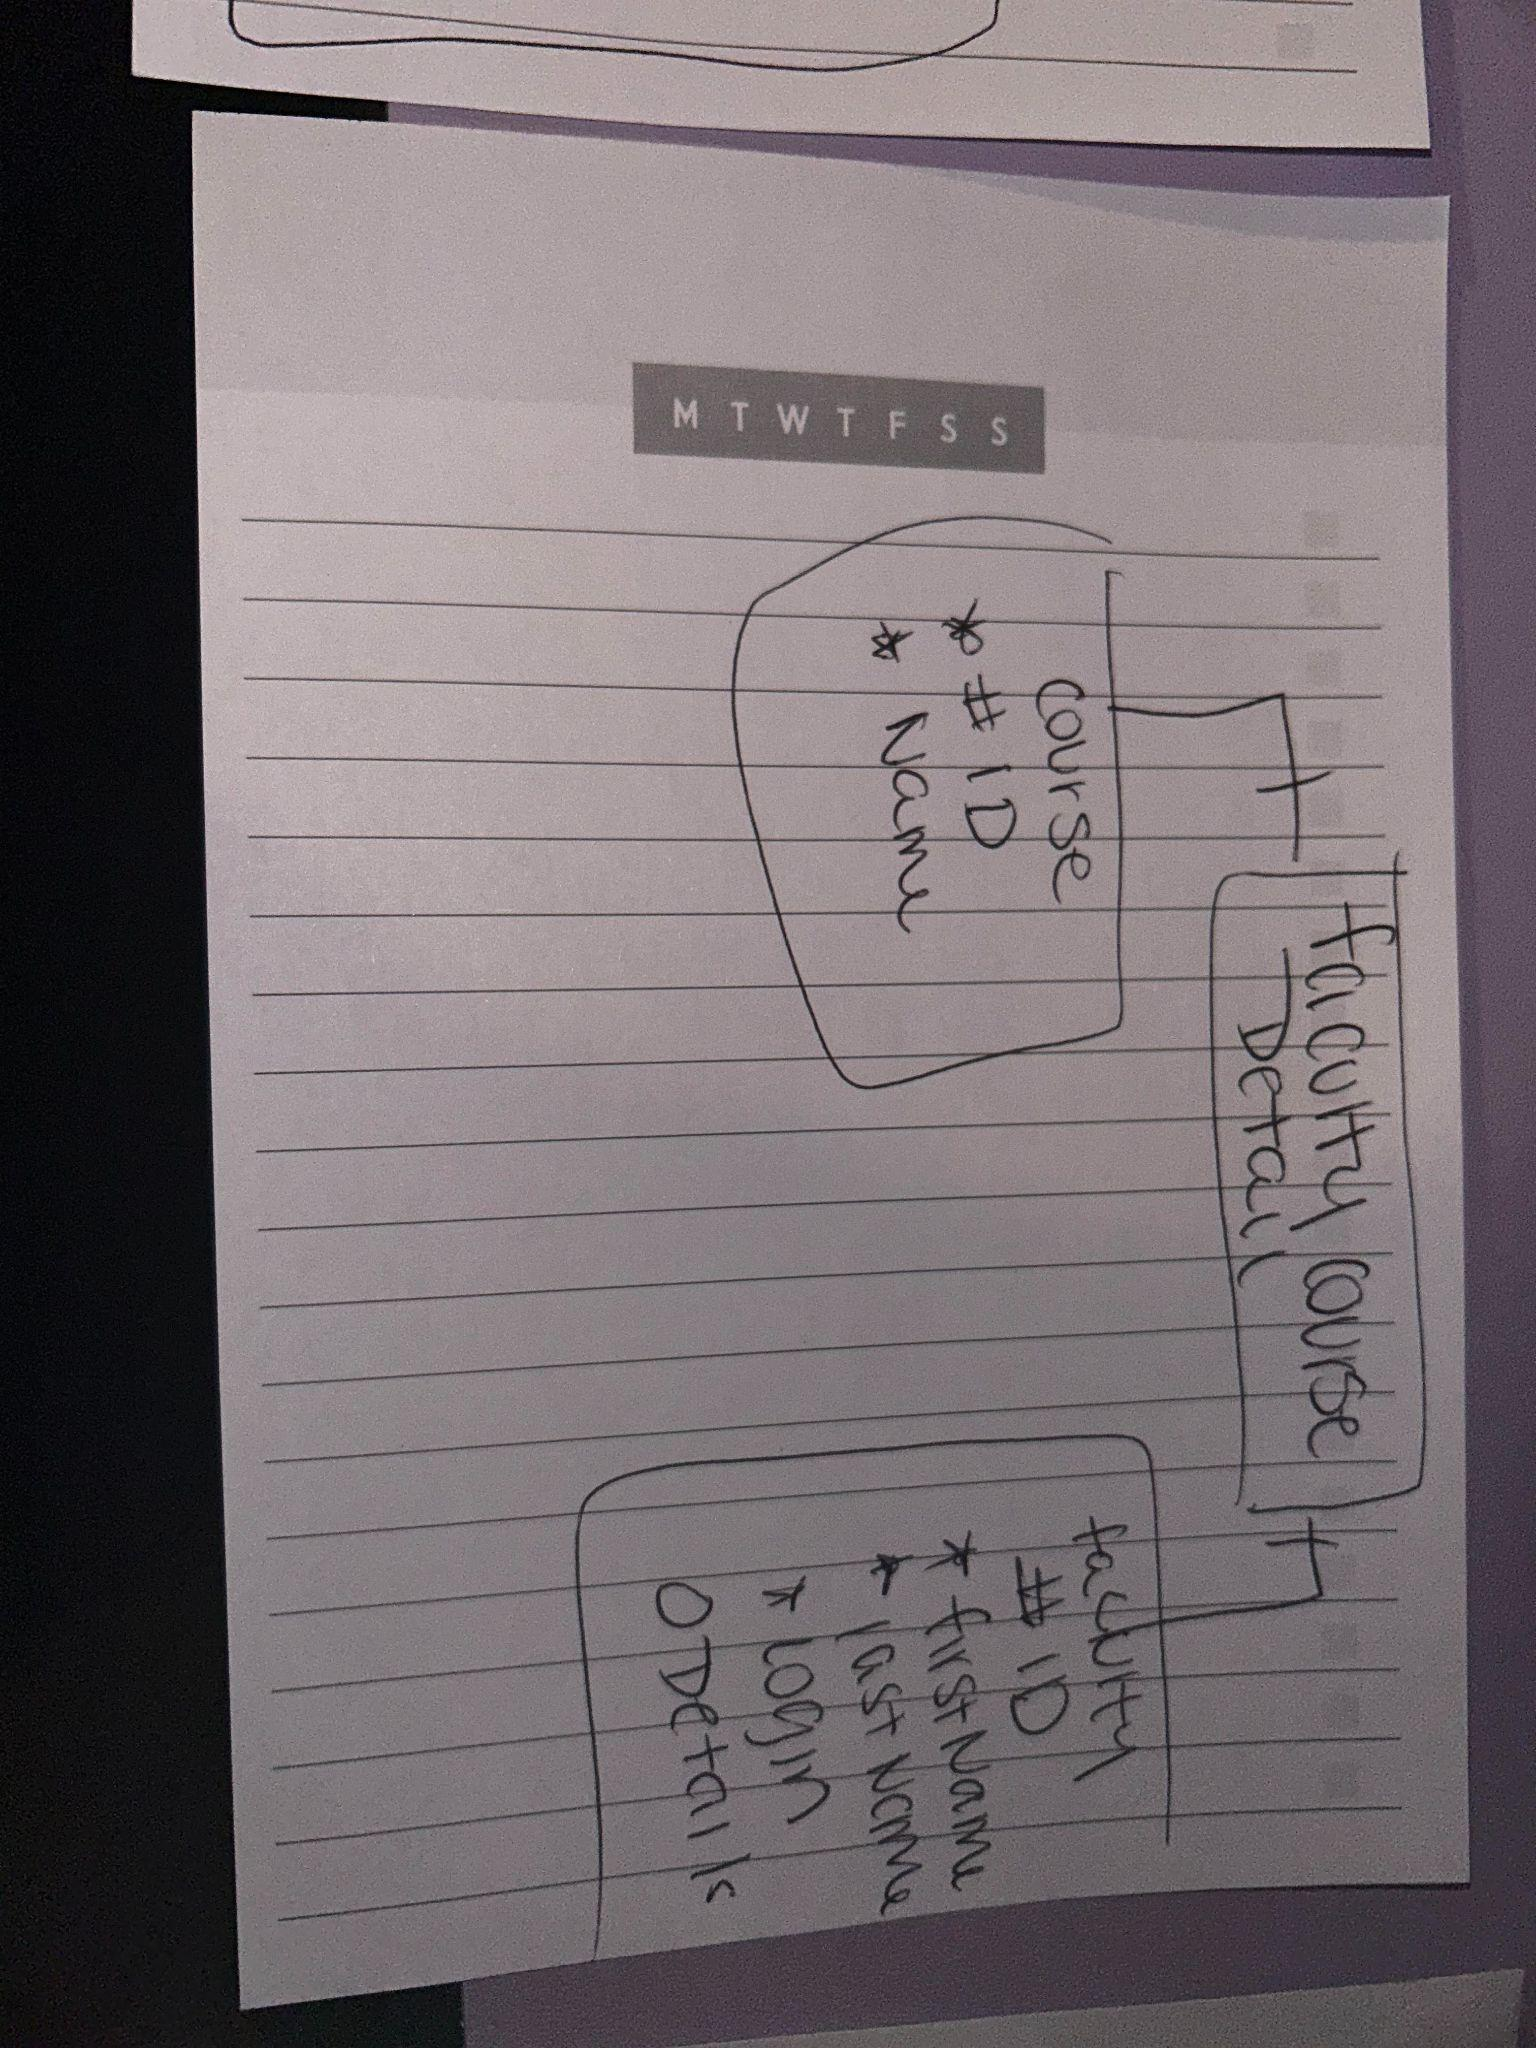 M T W T F S S
Faculty Course
Detail
Course
* # ID
* Name
Faculty
# ID
* First Name
* last Name
* Login
O Details